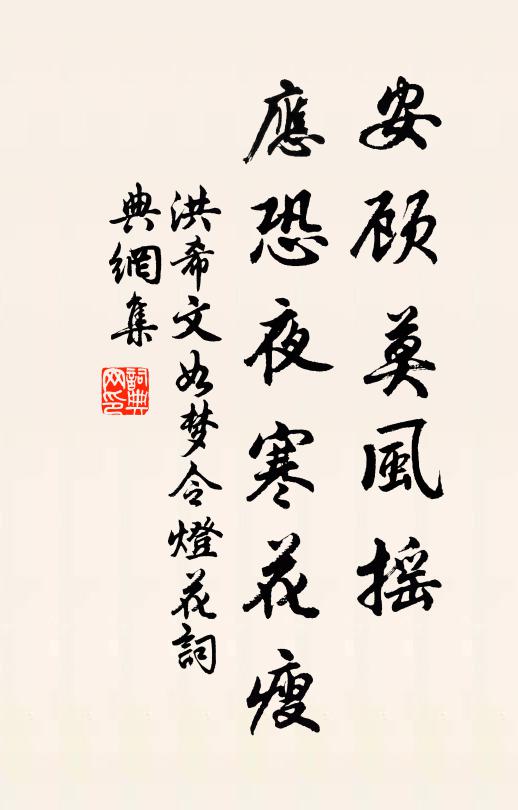 安顾莫風摇
應恐夜寒花瘦
洪希文如梦令燈花詞
典網集
詞典網印